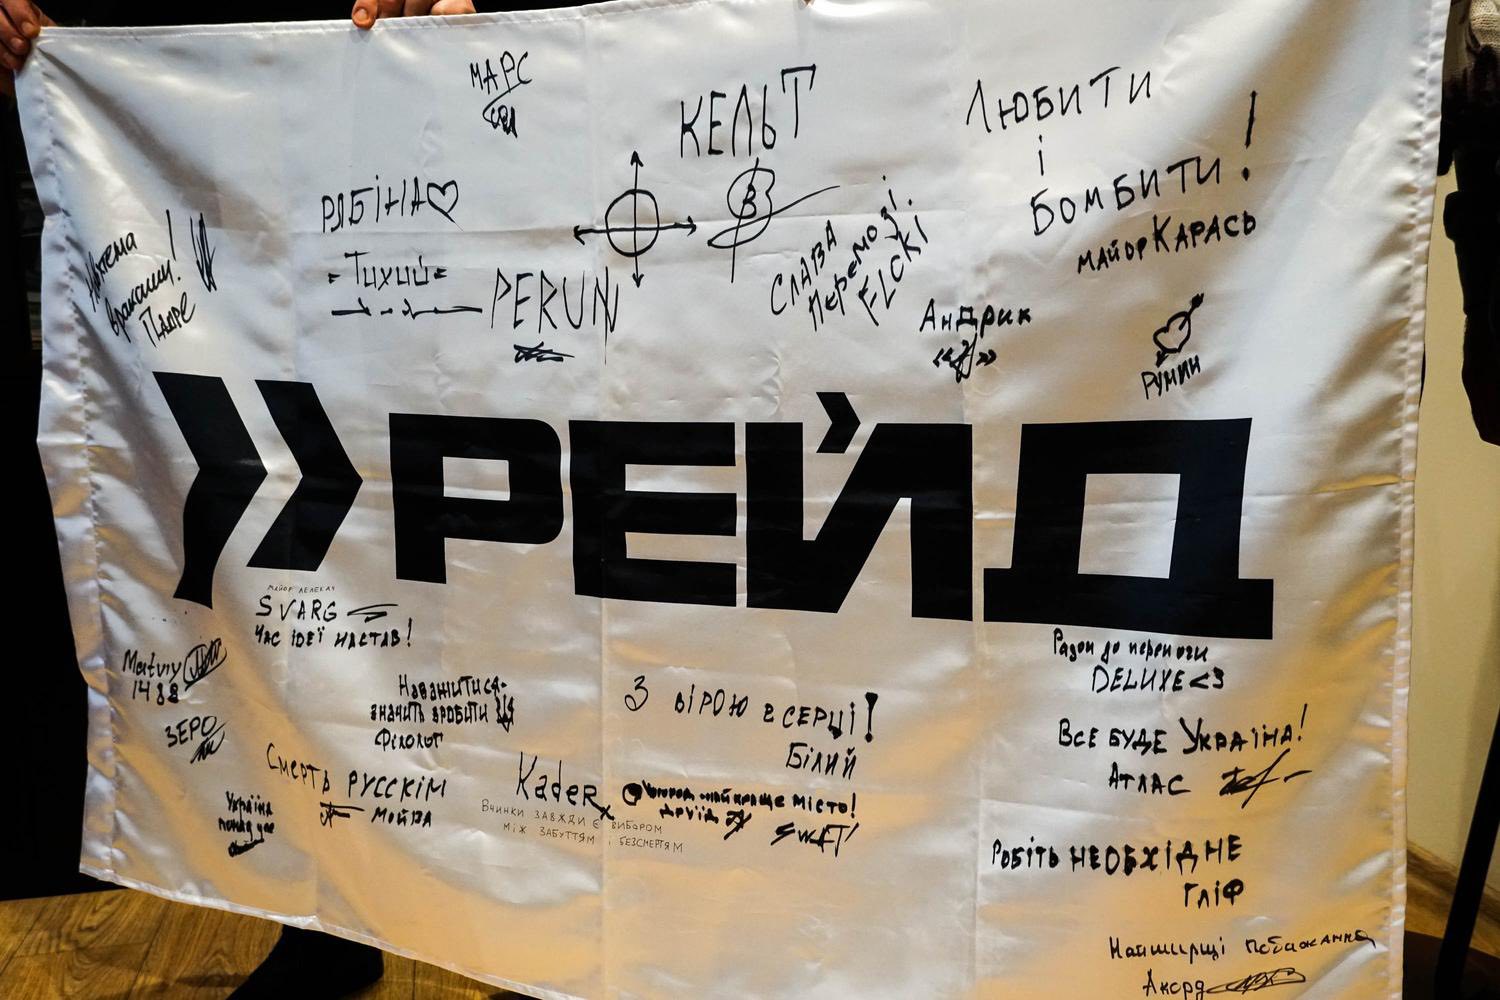 МАРС
КЕЛЬТ
ЛЮБИТИ
і
БОМБИТИ!
МАЙОР КАРАСЬ
РЯБІНА
-Тихий-
PERUN
СЛАВА
Перемозі.
Нехтема
вракаши!
Падре
Андрик
РУМИН
РЕЙД
МАЙОР ЛЕЛЕКАЧ
SVARG
ЧАС ІДЕЇ НАСТАВ!
Matviy
1488
ЗЕРО
Наважитися-
значить зробити
Філолог
З ВІРОЮ в СЕРЦІ!
Білий
Разом до перемоги
DELUXE<3
ВСЕ БУДЕ УКРАЇНА!
АТЛАС
Смерть РУССКІМ
МОЙРА
Україна
понад усе
Kader
Вчинки ЗАВЖДИ Є ВИБОРОМ
МІЖ ЗАБУТТЯМ І БЕЗСМЕРТЯМ
найкраще місто!
друїд
SWAT
РОБІТЬ НЕОБХІДНЕ
ГЛІФ
Найширіщі побажання
Акорд